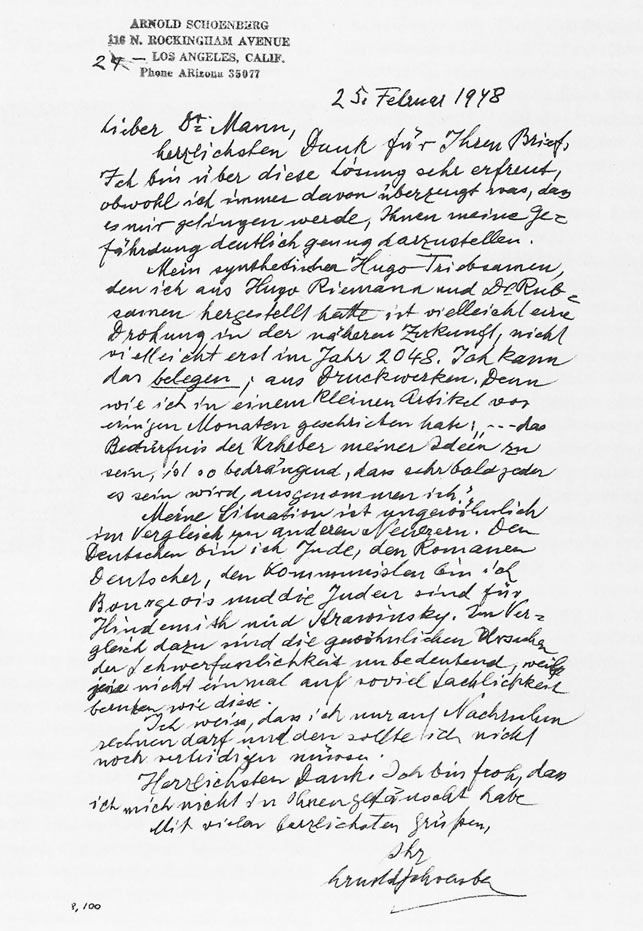 ARNOLD SCHOENBERG
116 N. ROCKINGHAM AVENUE
24 — LOS ANGELES, CALIF.
Phone ARizona 35077
25. Februar 1948
Lieber Dr. Mann,
herzlichsten Dank für Ihren Brief.
Ich bin über diese Lösung sehr erfreut,
obwohl ich immer davon überzeugt war, dass
es mir gelingen werde, Ihnen meine Ge=
fährdung deutlich genug darzustellen.
Mein synthetischer Hugo Triebsamen,
den ich aus Hugo Riemann und Dr Rub=
samen hergestellt hatte ist vielleicht eine
Drohung in der näheren Zukunft, nicht
vielleicht erst im Jahr 2048. Ich kann
das belegen; aus Druckwerken. Denn
wie ich in einem kleinen Artikel vor
einigen Monaten geschrieben habe: „---das
Bedürfnis der Urheber meiner Ideen zu
sein, ist so bedrängend, dass sehr bald jeder
es sein wird, ausgenommen ich."
Meine Situation ist ungewöhnlich
im Vergleich zu anderen Neuerern. Den
Deutschen bin ich Jude, den Romanen
Deutscher, den Kommunisten bin ich
Bourgeois und die Juden sind für
Hindemith und Strawinsky. Im Ver=
gleich dazu sind die gewöhnlichen Ursachen
der Schwerfasslichkeit unbedeutend, weil
jene nicht einmal auf soviel Sachlichkeit
beruhen wie diese.
Ich weiss, dass ich nur auf Nachruhm
rechnen darf und den sollte ich nicht
noch verteidigen müssen.
Herzlichsten Dank. Ich bin froh, dass
ich mich nicht in Ihnen getäuscht habe
Mit vielen herzlichsten Grüßen,
Ihr
Arnold Schoenberg
8,100